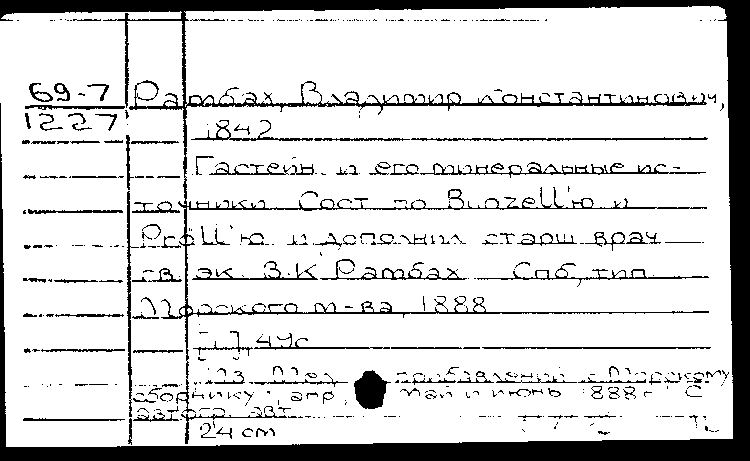 69-7 Рамбах, Владимир Константинович,
1227 1842
Гастейн и его минеральные ис-
точники Сост по Bunzell'ю и
Pröll'ю и дополнил старш врач
гв эк. В.К Рамбах Спб, тип
Морского м-ва, 1888
[1], 49с
Из Мед прибавлений к Морскому
сборнику", апр, май и июнь 1888г С
автогр авт
24 cm